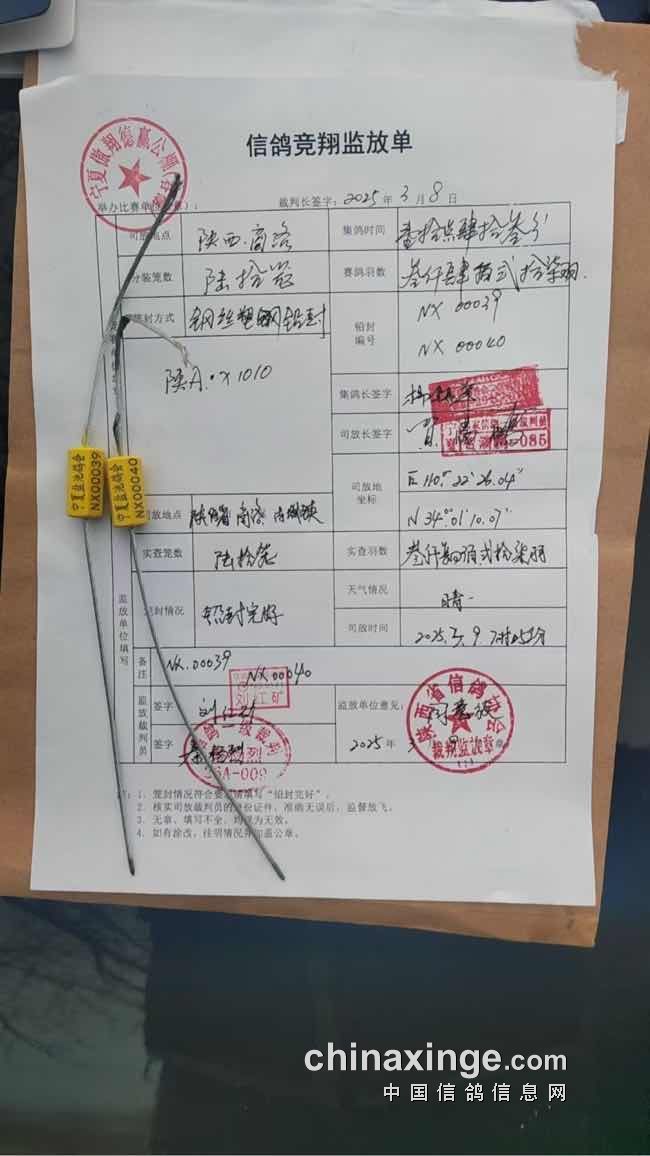 信鸽竞翔监放单
宁夏傲翔德赢公棚
裁判长签字：2025年3月8日
举办比赛单
司放地点 陕西·商洛 集鸽时间
分装笼数 陆拾笼 赛鸽羽数 叁仟肆佰贰拾柒羽
笼封方式 钢丝塑钢铅封 铅封编号 NX 00039
NX 00040
陕A·X1010
集鸽长签字
司放长签字
085
司放地坐标 E 110°22′26.04″
N 34°01′10.07″
宁夏盐池鸽会 NX00039
宁夏盐池鸽会 NX00040
司放地点
实查笼数 陆拾笼 实查羽数 叁仟肆佰贰拾柒羽
铅封情况 铅封完好 天气情况 晴
司放时间 2025.3.9.7时05分
监放单位填写
备注 NX.00039
NX00040
监放裁判员 签字
签字
监放单位意见：
陕西省信鸽
裁判监放章
2025年3
1、笼封情况符合要 填写“铅封完好”。
2、核实司放裁判员的身份证件，准确无误后，监督放飞。
3、无章、填写不全，均视为无效。
4、如有涂改，注明情况并加盖公章。
chinaxinge.com
中国信鸽信息网